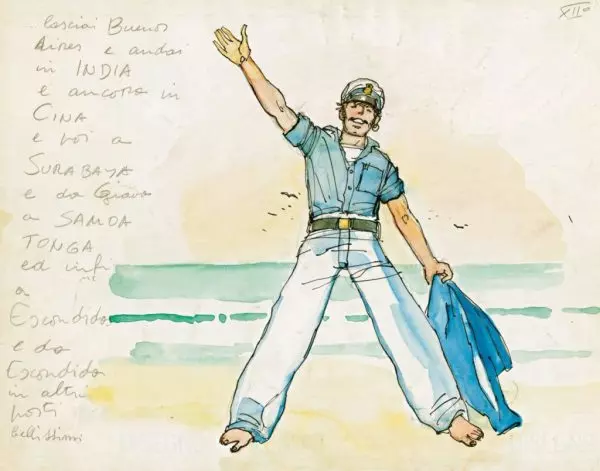 lasciai Buenos
Aires e andai
in INDIA
e ancora in
CINA
e poi a
SURABAYA
e da Giava
a SAMOA
TONGA
ed infi
ne
a
Escondida
e da
Escondida
in altri
posti
bellissimi
XIIª